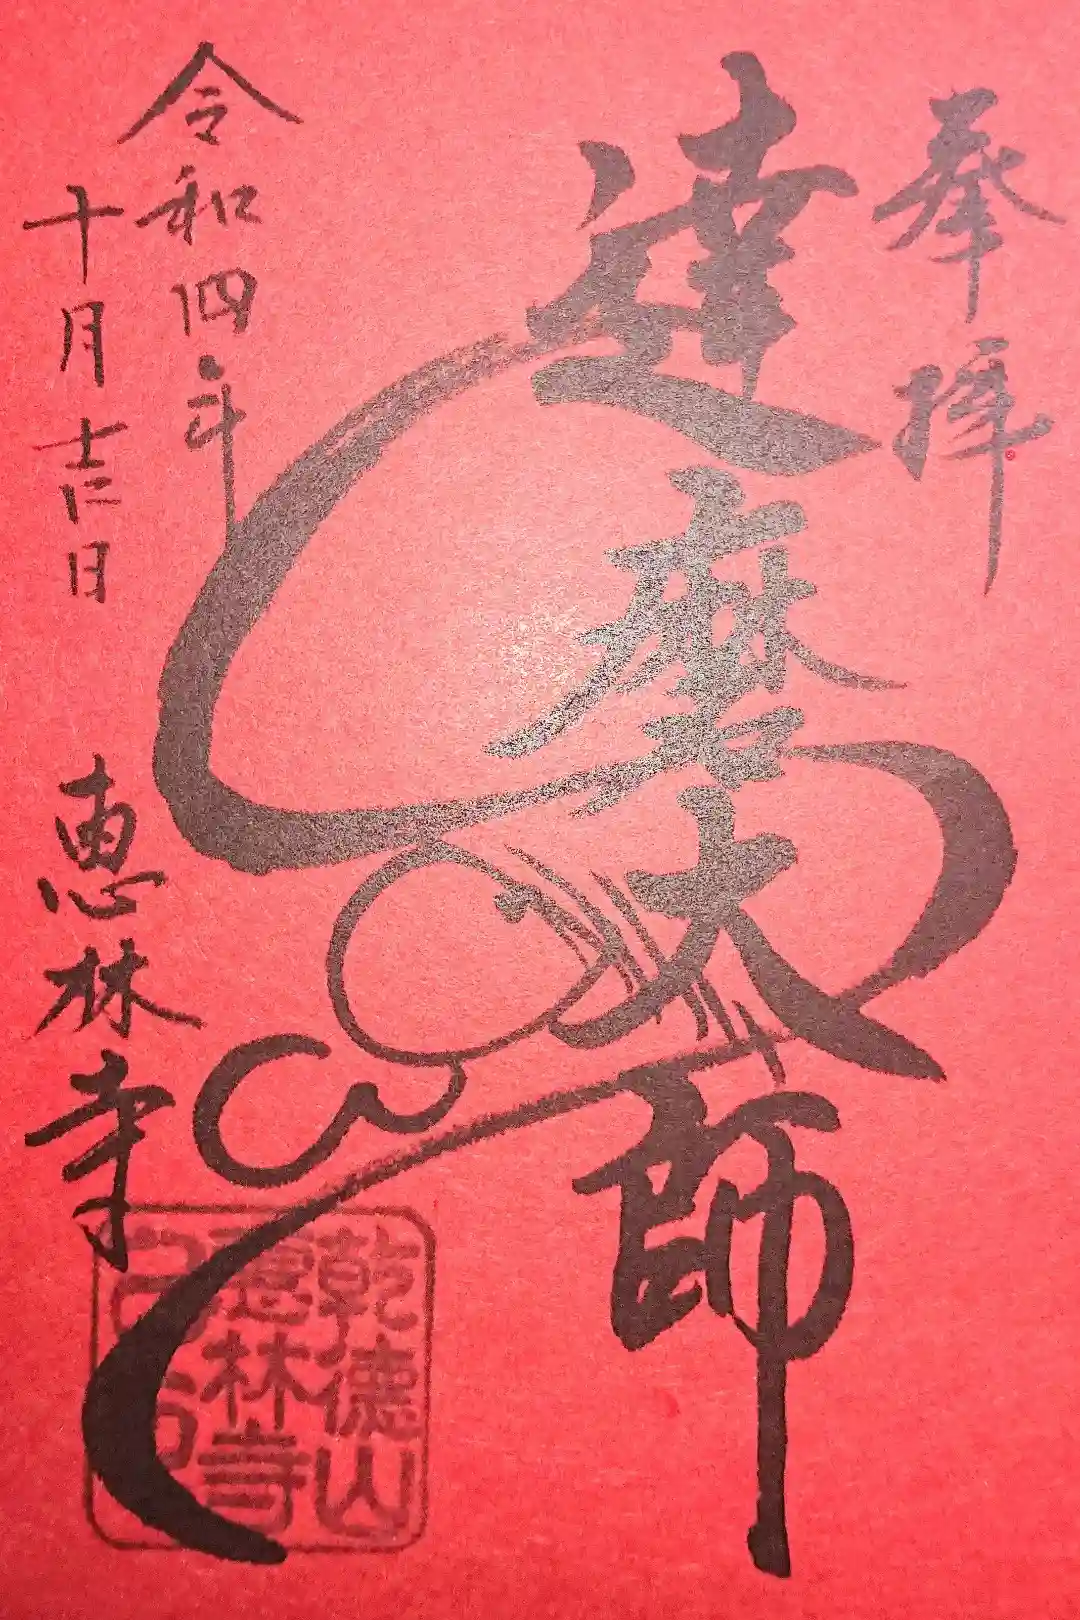 奉拝
達磨大師
令和四年
十月 日
恵林寺
乾徳山
恵林寺